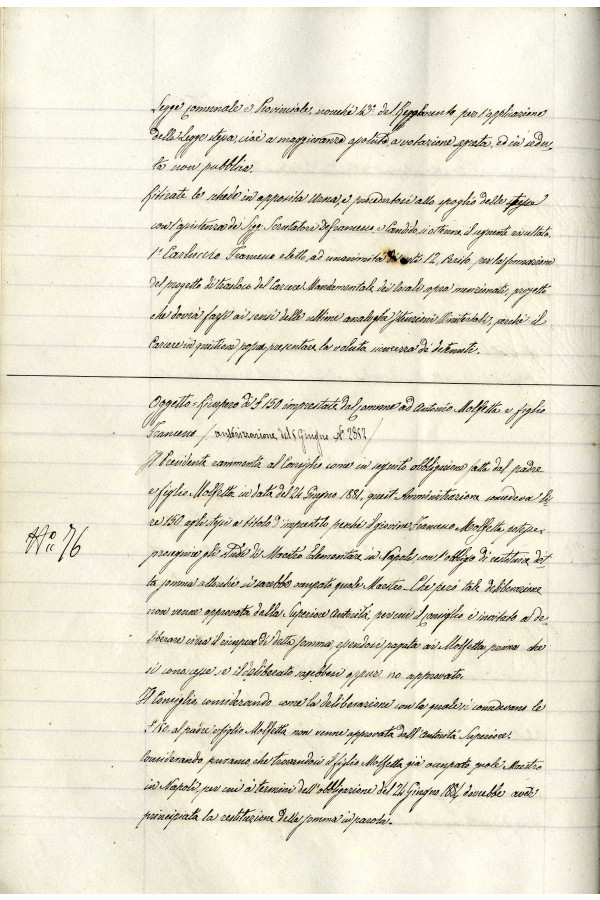 Legge Comunale e Provinciale, nonché 43° del Regolamento per l'applicazione
della Legge stessa, cioè a maggioranza assoluta a votazione segreta, ed in sedu-
ta non pubblica.
Ritirate le schede in apposita Urna, e procedutosi allo spoglio delle stesse
con l'assistenza dei Sigg. Scrutatori Defrancesco e Candido, si ottenne il seguente risultato.
1° Carluccio Francesco eletto ad unanimità di voti 12, Perito, per la formazione
del progetto di trasloco del Carcere Mandamentale dei locale sopra menzionati, progetto
che dovrà farsi ai sensi delle ultime analoghe Istruzioni Ministeriali, perché il
Carcere in quistione possa presentare la voluta sicurezza di detenuti.
Oggetto = Ricupero di £ 150 imprestate dal Comune ad Antonio Molfetta e figlio
Francesco / autorizzazione del 5 Giugno N° 2857 /
N° 76
Il Presidente rammenta al Consiglio come in seguito obbligazione fatta dal padre
e figlio Molfetta in data del 24 Giugno 1881, quest'Amministrazione concedeva Li-
re 150 agli stessi a titolo d'imprestito perché il giovine Francesco Molfetta potesse
proseguire gli studi di Maestro Elementare in Napoli con l'obbligo di restituire det-
ta somma allorché si sarebbe occupato quale Maestro. Che però tale deliberazione
non venne approvata dalla Superiore Autorità, per cui il Consiglio è invitato a de-
liberare circa il ricupero di detta somma, essendosi pagata ai Molfetta, prima che
si conoscesse se il deliberato sarebbesi oppur no approvato.
Il Consiglio considerando come la deliberazione con la quale si concedevano le
£ 150 al padre e figlio Molfetta non venne approvata dall'Autorità Superiore.
Considerando pur anco, che trovandosi il figlio Molfetta già occupato quale Maestro
in Napoli, per cui a termini dell'obbligazione del 24 Giugno 1881 dovrebbe aver
principiata la restituzione della somma in parola.